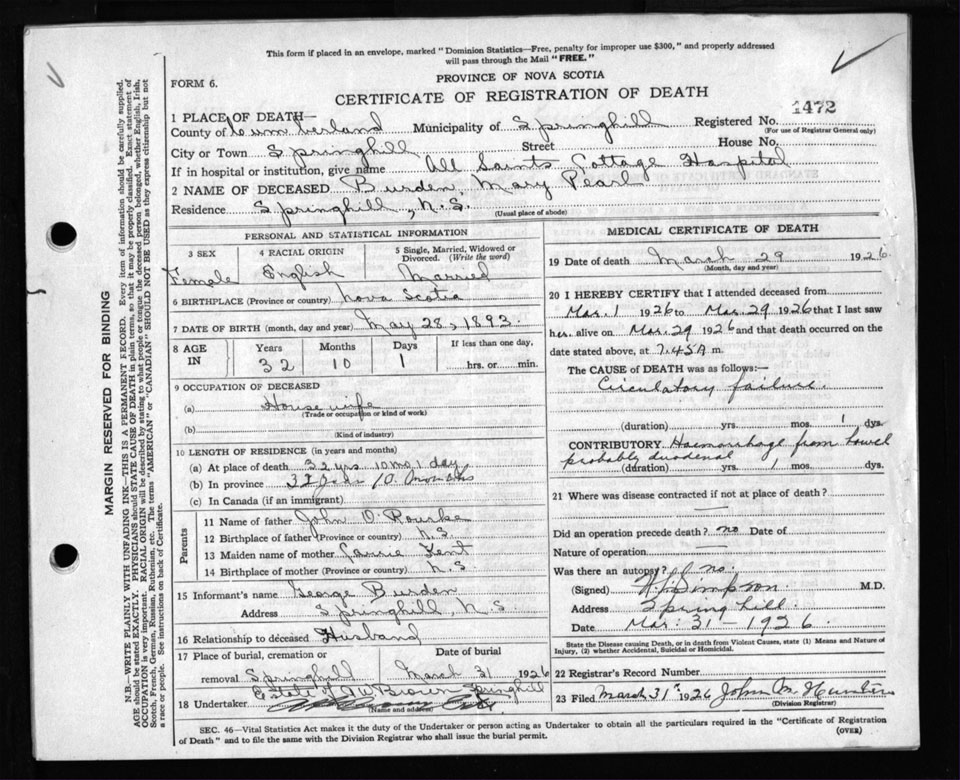 This form if placed in an envelope, marked "Dominion Statistics—Free, penalty for improper use $300," and properly addressed
will pass through the Mail "FREE."
PROVINCE OF NOVA SCOTIA
FORM 6.
CERTIFICATE OF REGISTRATION OF DEATH
1472
1 PLACE OF DEATH—
County of Cumberland Municipality of Springhill Registered No.
(For use of Registrar General only)
City or Town Springhill Street House No.
If in hospital or institution, give name All Saints Cottage Hospital
2 NAME OF DECEASED Burden, Mary Pearl
Residence Springhill, N.S.
(Usual place of abode)
PERSONAL AND STATISTICAL INFORMATION
3 SEX 4 RACIAL ORIGIN 5 Single, Married, Widowed or Divorced. (Write the word)
Female English Married
6 BIRTHPLACE (Province or country) Nova Scotia
7 DATE OF BIRTH (month, day and year) May 28, 1893.
8 AGE IN Years Months Days If less than one day,
32 10 1 hrs. or min.
9 OCCUPATION OF DECEASED
(a) Housewife
(Trade or occupation or kind of work)
(b)
(Kind of industry)
10 LENGTH OF RESIDENCE (in years and months)
(a) At place of death 32 yrs. 10 mo. 1 day
(b) In province 32 years 10 months
(c) In Canada (if an immigrant)
Parents
11 Name of father John O'Rourke
12 Birthplace of father (Province or country) N.S.
13 Maiden name of mother Carrie Kent
14 Birthplace of mother (Province or country) N.S
15 Informant's name George Burden
Address Springhill N.S.
16 Relationship to deceased Husband
17 Place of burial, cremation or Date of burial
removal Springhill March 31 1926
Estate of J W Brown Springhill
18 Undertaker
(Name and address)
MEDICAL CERTIFICATE OF DEATH
19 Date of death March 29 1926
(Month, day and year)
20 I HEREBY CERTIFY that I attended deceased from
Mar. 1 1926 to Mar. 29 1926 that I last saw
her alive on Mar. 29 1926 and that death occurred on
date stated above, at 7.45 A m.
The CAUSE of DEATH was as follows:—
Circulatory failure.
(duration) yrs. mos. 1 dys.
CONTRIBUTORY Haemorrhage from bowel
probably duodenal
(duration) yrs. 1 mos. dys.
21 Where was disease contracted if not at place of death?
Did an operation precede death? no Date of
Nature of operation
Was there an autopsy? no.
(Signed) Simpson M.D.
Address Springhill.
Date Mar: 31 - 1926
State the Disease causing Death, or in death from Violent Causes, state (1) Means and Nature of
Injury, (2) whether Accidental, Suicidal or Homicidal.
22 Registrar's Record Number
23 Filed March 31st 1926 John M. Hunter
(Division Registrar)
SEC. 46—Vital Statistics Act makes it the duty of the Undertaker or person acting as Undertaker to obtain all the particulars required in the "Certificate of Registration
of Death" and to file the same with the Division Registrar who shall issue the burial permit.
(OVER)
MARGIN RESERVED FOR BINDING
N.B.—WRITE PLAINLY WITH UNFADING INK—THIS IS A PERMANENT RECORD. Every item of information should be carefully supplied.
AGE should be stated EXACTLY. PHYSICIANS should STATE CAUSE OF DEATH in plain terms, so that it may be properly classified. Exact statement of
OCCUPATION is very important. RACIAL ORIGIN will be described by stating to what people or tongue the deceased person belonged, whether English, Irish,
Scotch, French, German, Russian, Ruthenian, etc. The terms "AMERICAN" or "CANADIAN" SHOULD NOT BE USED as they express citizenship but not
a race or people. See instructions on back of Certificate.